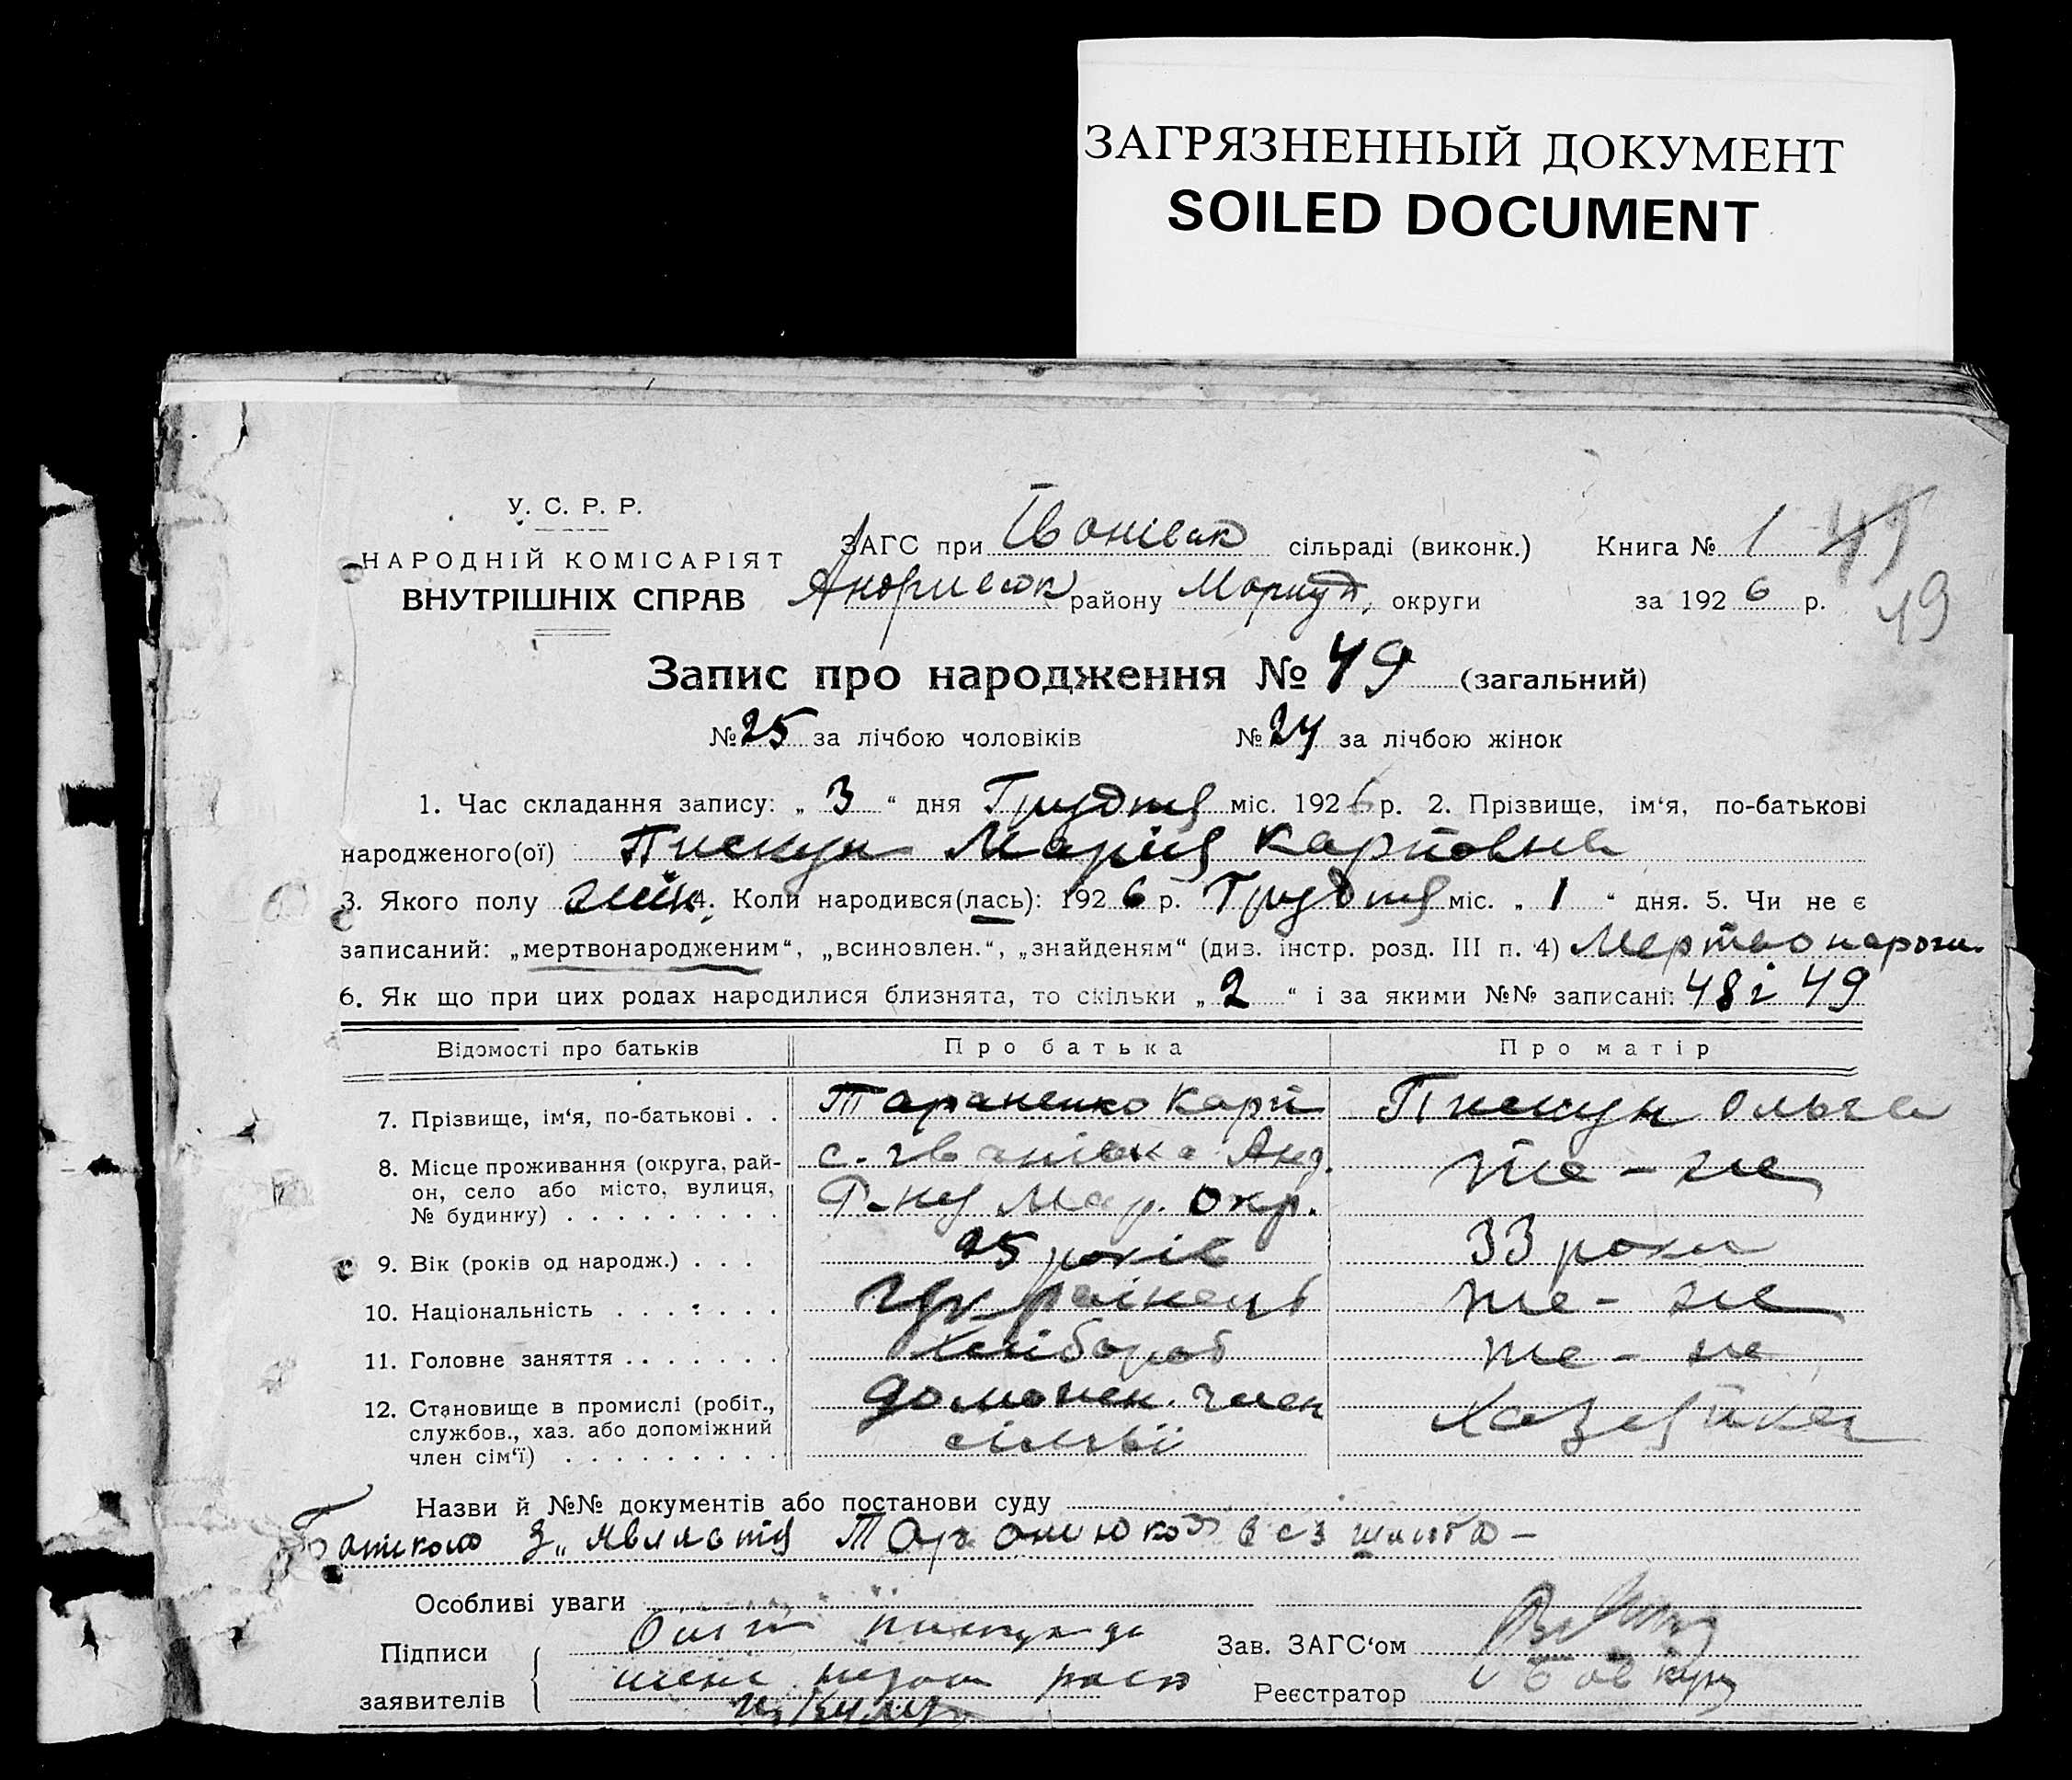 ЗАГРЯЗНЕННЫЙ ДОКУМЕНТ
SOILED DOCUMENT
У. С. Р. Р.
НАРОДНІЙ КОМІСАРІЯТ
ВНУТРІШНІХ СПРАВ
ЗАГС при сільраді (виконк.) Книга № 1 49
району Маріуп. округи за 1926 р.
49
Запис про народження № 49 (загальний)
№ 25 за лічбою чоловіків № 24 за лічбою жінок
1. Час складання запису: „ 3 “ дня Грудня міс. 1926 р. 2. Прізвище, ім‘я, по-батькові
народженого(ої) Пискун Марія Карповна
3. Якого полу жін. 4. Коли народився(лась): 1926 р. Грудня міс. „ 1 “ дня. 5. Чи не є
записаний: „мертвонародженим“, „всиновлен.“, „знайденям“ (див. інстр. розд. III п. 4) Мертвонарож.
6. Як що при цих родах народилися близнята, то скільки „ 2 “ і за якими №№ записані: 48 і 49
Відомості про батьків Про батька Про матір
7. Прізвище, ім‘я, по-батькові . . Тараненко Карп Пискун Ольга
8. Місце проживання (округа, рай- с. Званівка Анд. те - же
он, село або місто, вулиця, Р-ну Мар. Окр.
№ будинку) . . . . . . . . .
9. Вік (років од народж.) . . . 25 років 33 роки
10. Національність . . . . . . . Українець те - же
11. Головне заняття . . . . . . . Хлібороб те - же
12. Становище в промислі (робіт., домонек. член Хазяйка
службов., хаз. або допоміжний сімьї
член сім‘ї) . . . . . . . . .
Назви й №№ документів або постанови суду
Батьком з„является
Особливі уваги
Підписи Пискун Зав. ЗАГС‘ом
заявителів Реєстратор